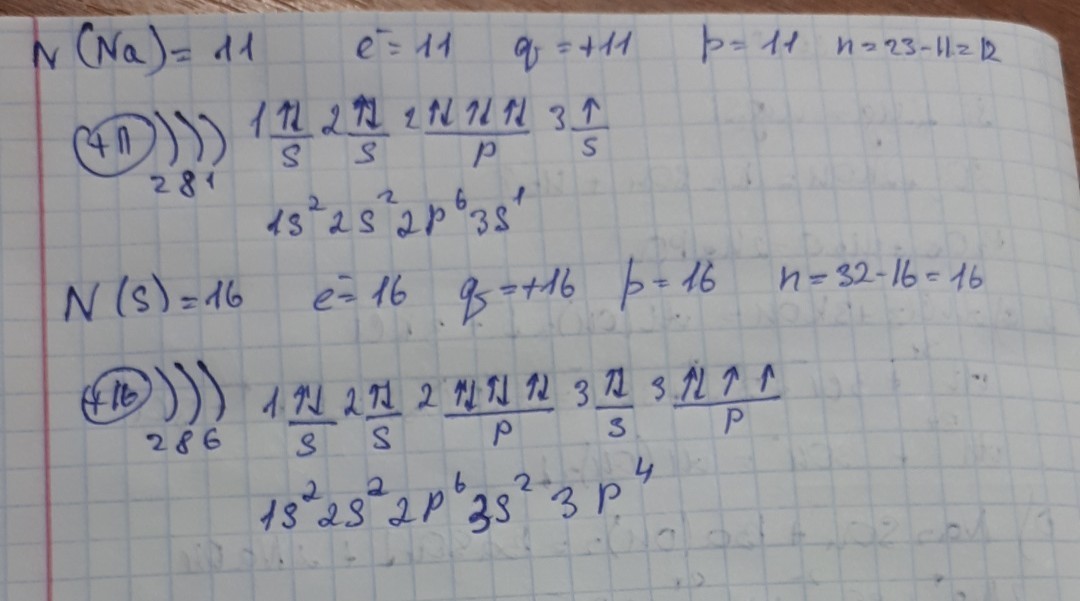 N (Na) = 11 e⁻ = 11 q = +11 p = 11 n = 23 - 11 = 12
+11 ) ) ) 1 ↑↓ 2 ↑↓ 2 ↑↓ ↑↓ ↑↓ 3 ↑
2 8 1 s s p s
1s² 2s² 2p⁶ 3s¹
N (S) = 16 e⁻ = 16 q = +16 p = 16 n = 32 - 16 = 16
+16 ) ) ) 1 ↑↓ 2 ↑↓ 2 ↑↓ ↑↓ ↑↓ 3 ↑↓ 3 ↑↓ ↑ ↑
2 8 6 s s p s p
1s² 2s² 2p⁶ 3s² 3p⁴